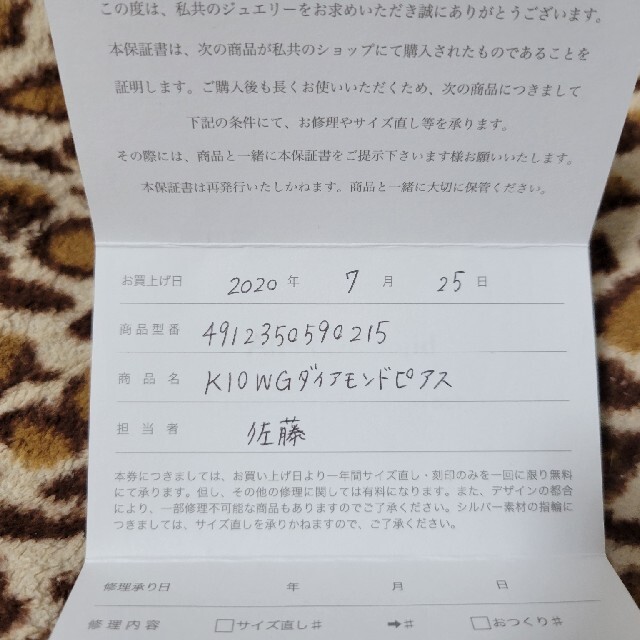 この度は、私共のジュエリーをお求めいただき誠にありがとうございます。
本保証書は、次の商品が私共のショップにて購入されたものであることを
証明します。ご購入後も長くお使いいただくため、次の商品につきまして
下記の条件にて、お修理やサイズ直し等を承ります。
その際には、商品と一緒に本保証書をご提示下さいます様お願いいたします。
本保証書は再発行いたしかねます。商品と一緒に大切に保管ください。
お買上げ日 2020 年 7 月 25 日
商品型番 4912350590215
商品名 K10WGダイアモンドピアス
担当者 佐藤
本券につきましては、お買い上げ日より一年間サイズ直し・刻印のみを一回に限り無料
にて承ります。但し、その他の修理に関しては有料になります。また、デザインの都合
により、一部修理不可能な商品もありますのでご了承ください。シルバー素材の指輪に
つきましては、サイズ直しを承りかねますので、ご了承ください。
修理承り日 年 月 日
修理内容 □サイズ直し# ➡# □おつくり#